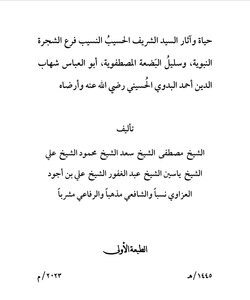 حياة وآثار السيد الشريف الحسيبُ النسيب فرع الشجرة
النبوية، وسليلُ البَضعة المصطفوية، أبو العباس شهاب
الدين أحمد البدوي الحُسيني رضي الله عنه وأرضاه
تأليف
الشيخ مصطفى الشيخ سعد الشيخ محمود الشيخ علي
الشيخ ياسين الشيخ عبد الغفور الشيخ علي بن اجود
العزاوي نسباً والشافعي مذهباً والرفاعي مشرباً
الطبعة الأولى
١٤٤٥/هـ ٢٠٢٣/م